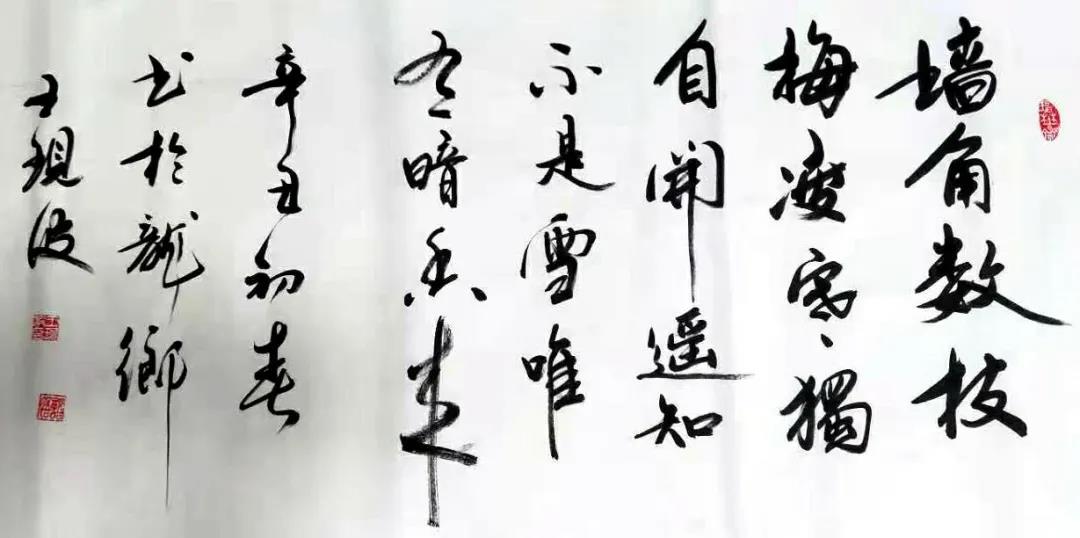 墙角数枝
梅凌寒獨
自開遥知
不是雪唯
有暗香来
辛丑初春
书於龍鄉
王現波